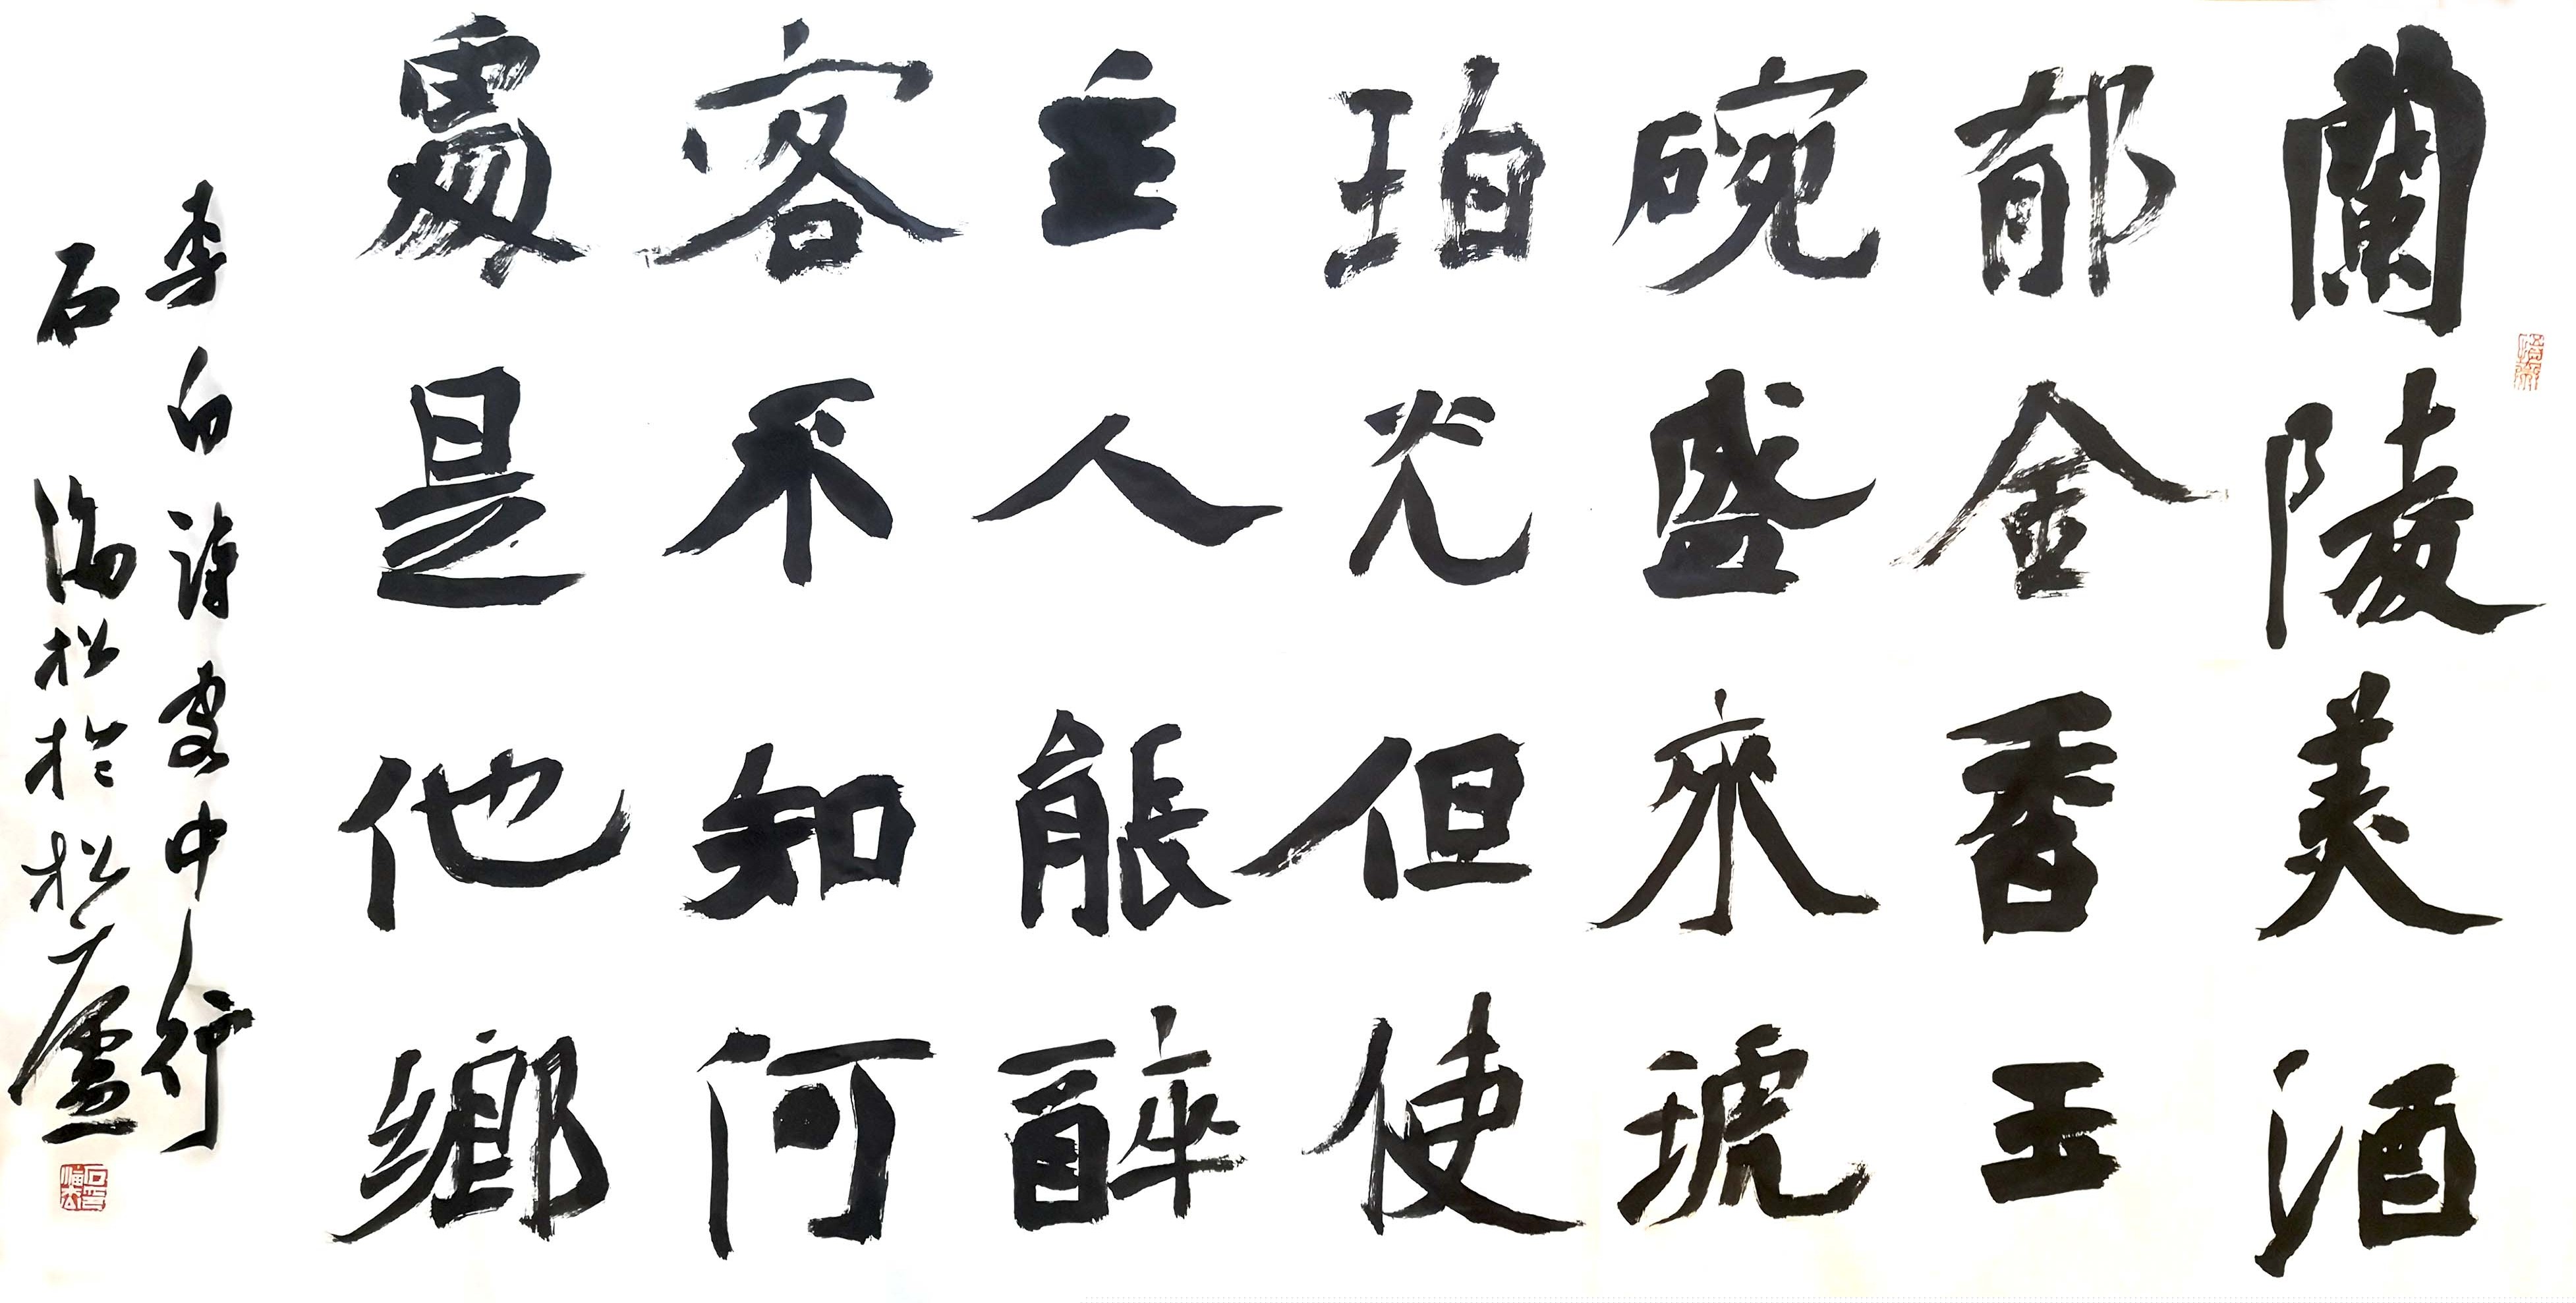 蘭陵美酒
郁金香玉
碗盛來琥
珀光但使
主人能醉
客不知何
處是他鄉
李白詩客中行
石海松於松廬